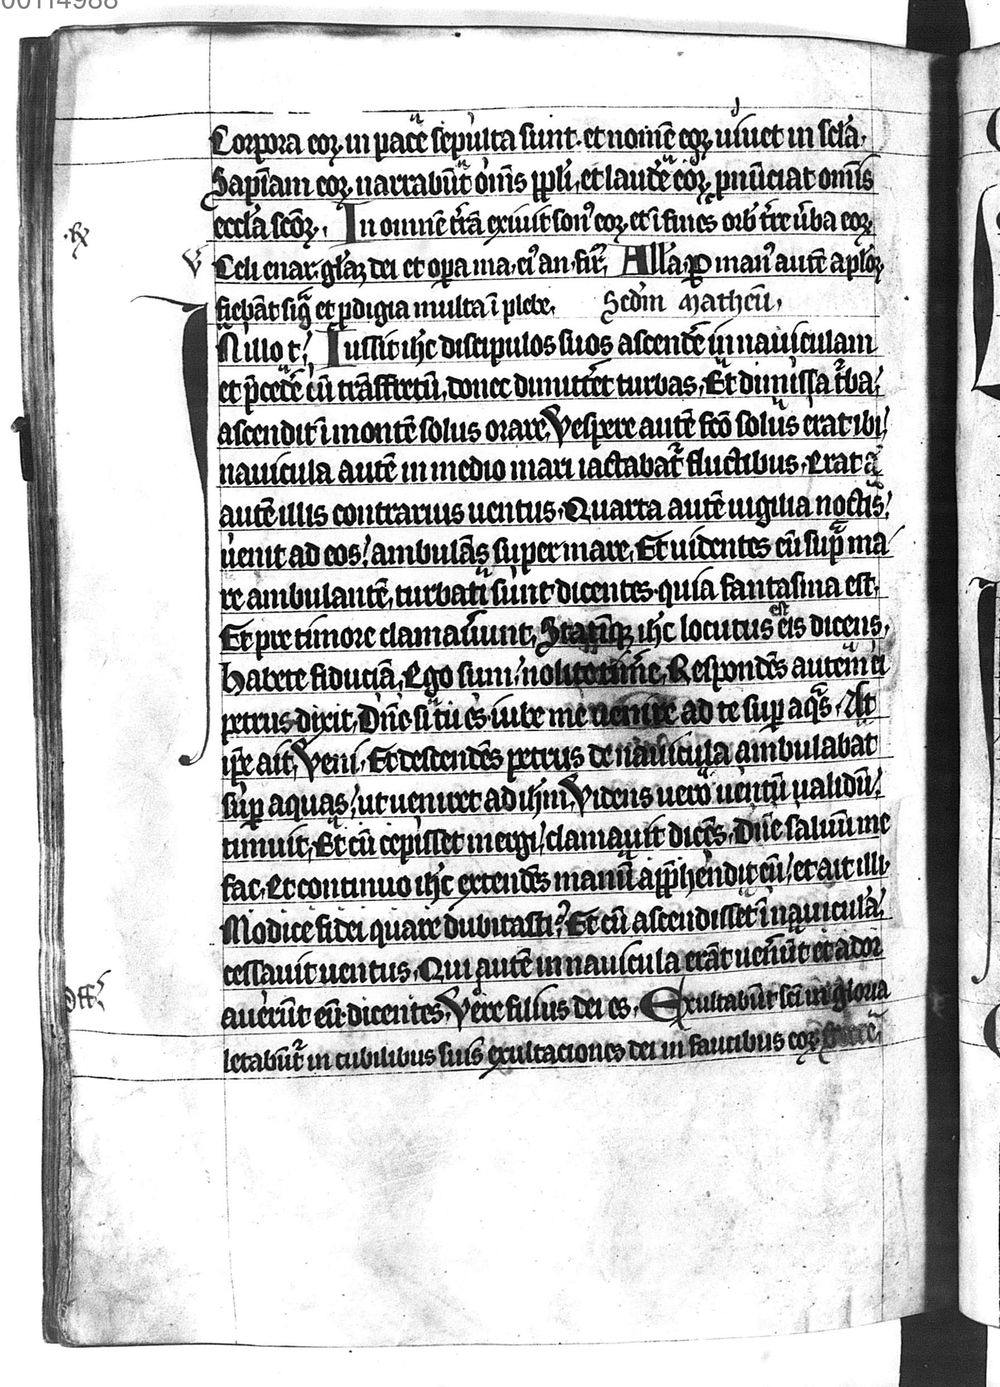 00114988
Corpora eoꝝ in pacē sepulta sunt · et nomē eoꝝ uiuet in sclā ·
Sapiam eoꝝ narrabūt om̄s ppli, et laudē eoꝝ pnūciat om̄is
eccla scōꝝ · In omnē trā exiuit son⁹ eoꝝ et ī fines orb̄ tre ūba eoꝝ
·R̸
V̸ Celi enar · głaꝫ dei et opa ma · ei⁹ an · fir̄, Allā · ꝑ man⁹ autē apłoꝝ
fiebāt sig̅ et pdigia multa ī plebe, Scdm matheū,
N illo t̄ Iussit ihc discipulos suos ascendē in nauiculam
et p̄cedē eū trāsfretū, donec dimittēt turbas, Et dimissa t̄ba
ascendit ī montē solus orare, Vespere autē fcō solus erat ibi
nauicula autē in medio mari iactabat̄ fluctibus · Erat
autē illis contrarius uentus · Quarta autē uigilia noctis
uenit ad eos ambulās super mare, Et uidentes eū sup̄ ma
re ambulantē, turbati sunt dicentes · quia fantasma est ·
Et pre timore clamauūnt, Statīqꝫ ihc locutus est eis dicens,
habete fiduciā, Ego sum nolite timē, Respondēs autem ei
petrus dixit, Dn̄e si tu es iube me uenire ad te sup aq̄s · At
ipe ait, Veni · Et descendēs petrus de nauicula ambulabat
sup aquas ut ueniret ad ihm, Videns uero uentū ualidū
timuit, Et cū cepisset mergi clamauit dicēs, Dn̄e saluū me
fac · Et continuo ihc extendēs manū apphendit eū et ait illi ·
Modice fidei quare dubitasti? Et cū ascendisset ī nauiculā
cessauit uentus, Qui autē in nauicula erāt uenūt et ador
off̄
auerūt eū dicentes · Vere filius dei es · Exultabūt sci in gloria
letabūt̄ in cubilibus suis exultaciones dei in faucibus eoꝝ